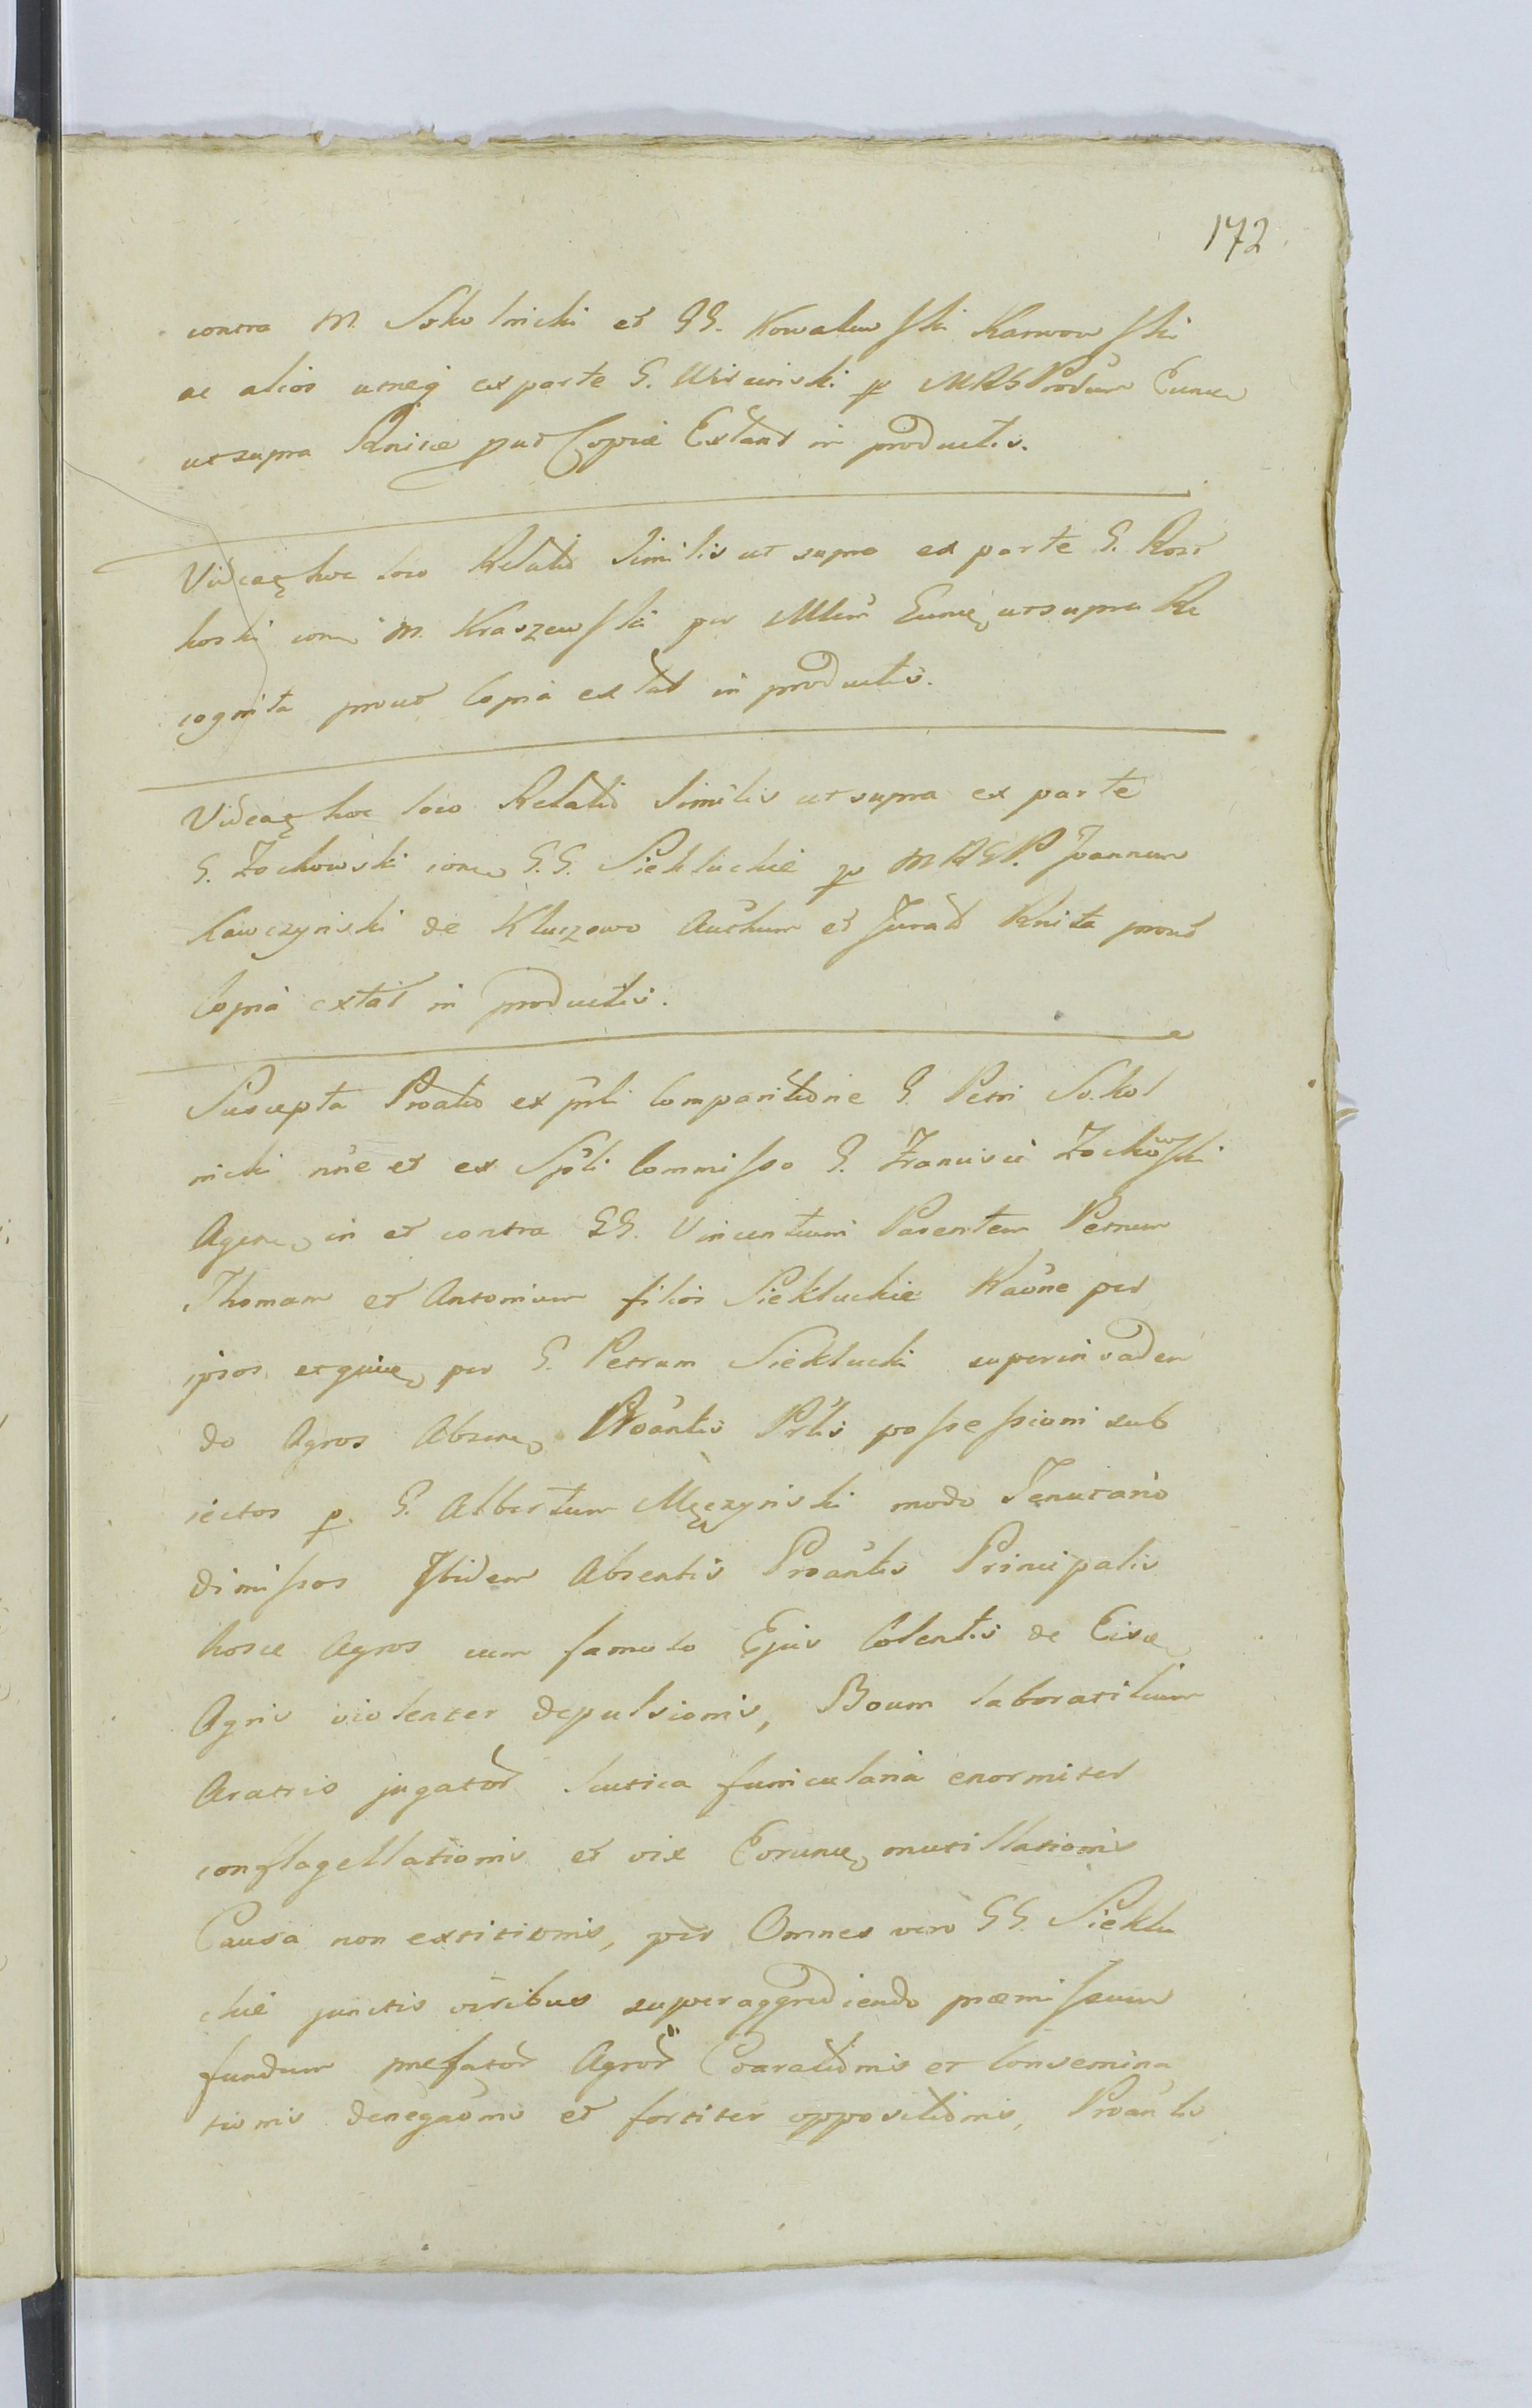 172
contra M. Sokolnicki et GG. Kowalewski Karwowski
ac alios utrieq ex parte G. Wisniewski p MRS Prodūm Eunđ
ut supra Rnitæ put Copiæ Extant in productis.
Videaţ hoc loco Relatio Similis ut supra ex parte G. Rosz
koski con M. Kraszewski per Mlēm Eunđ ut supra Re
cognita prout Copia extat in productis.
Videaţ hoc loco Relatio Similis ut supra ex parte
G. Zochowski con G.G. Siekluckie p MRGP. Joannem
Kawczynski de Kluczewo Authum et Jurat Rnita prout
Copia extat in productis.
Suscepta Proatio ex prli Comparitione G. Petri Sokol
nicki nōe et ex Spli Commisso G. Francisci Zochowski
Agen in et contra GG. Vincentium Parentem Petrum
Thomam et Antonium filios Siekluckie Raōne per
ipsos et quide per G. Petrum Sieklucki superinvaden
do Agros Absen Proāntis Prlis possessioni sub
iectos p. G. Albertum Męczynski modo Tenutario
dimissos Ibidem Absentis Proāntis Principalis
hosce Agros cum famulo Ejus Colentis de Eisđ
Agris violenter depulsionis, Boum laboratilium
Aratris jugator Scutica funicularia enormiter
conflagellationis et vix Eorund mutillationis
Causa non extitionis, per Omnes vero GG. Sieklu
ckie junctis viribus superaggrediendo præmissum
fundum prefator Agror Coaratiōnis et Consemina
tionis denegaōnis et fortiter oppositiōnis, Proāntis